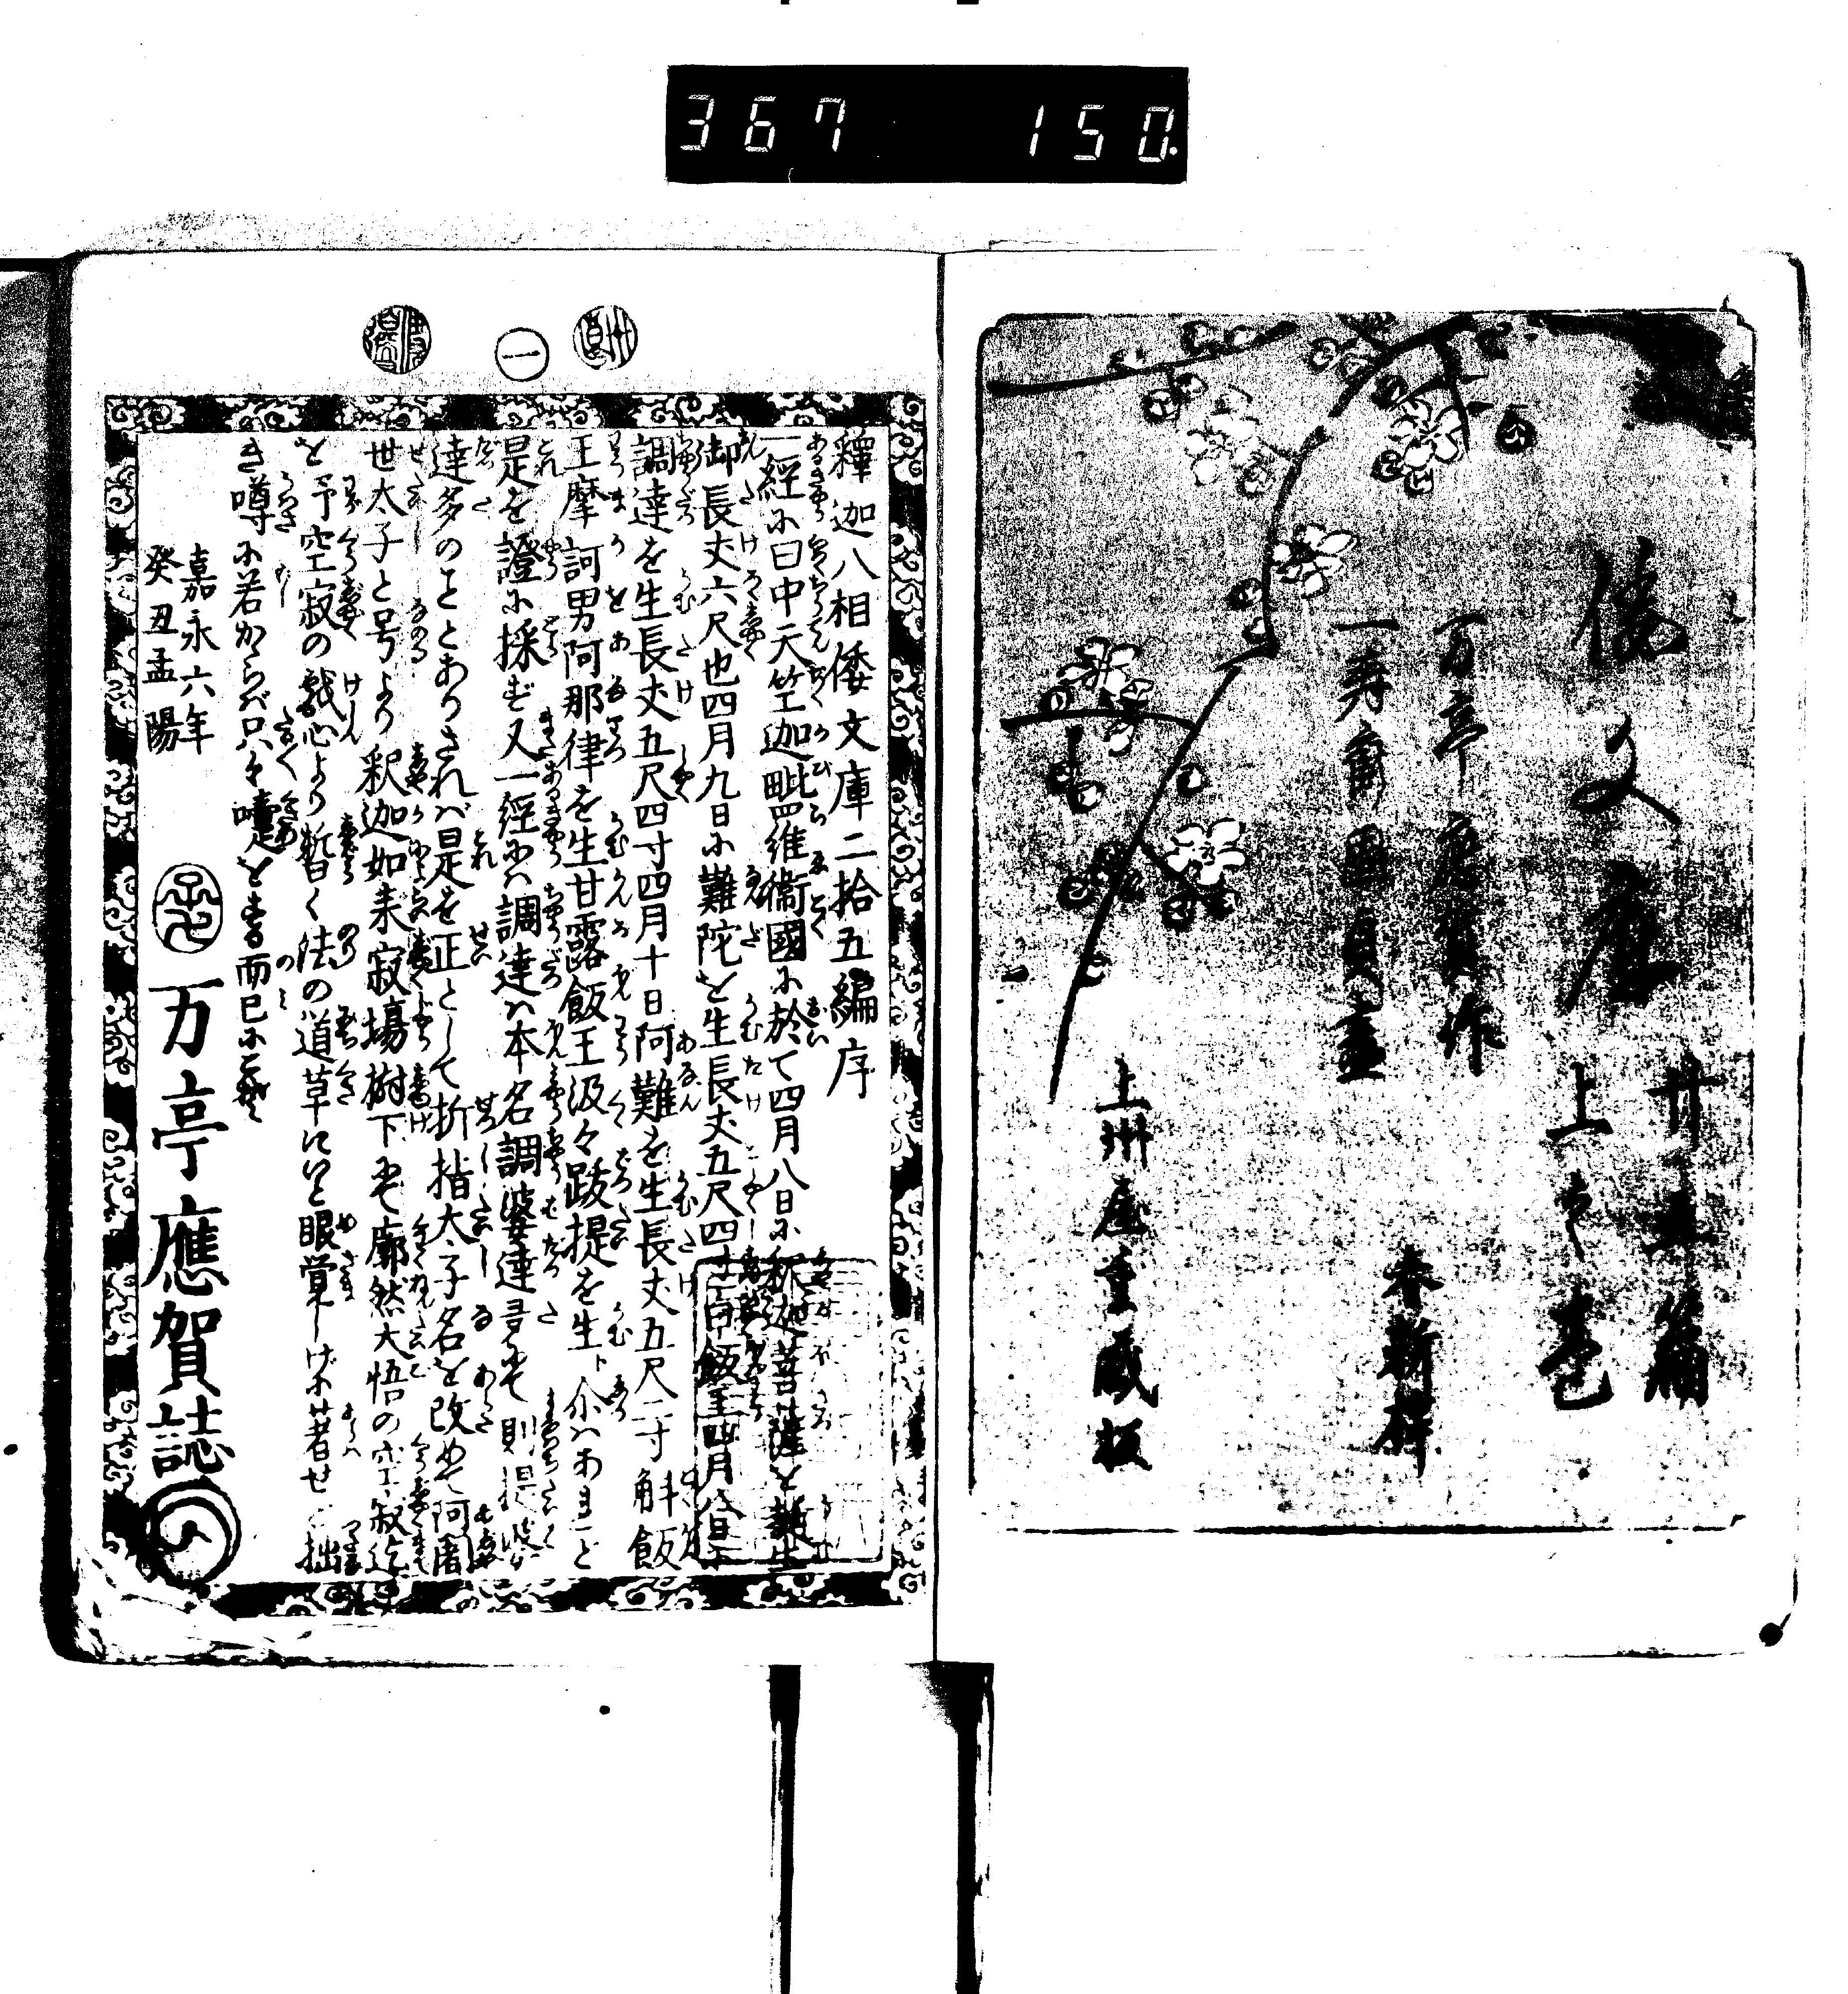 367 150
倭文庫
廿五編
上之巻
万亭應賀作
一壽齋國貞畫
春新梓
上州屋重藏板
一
釋迦八相倭文庫二拾五編序
一經に曰中天竺迦毗羅衛國に於て四月八日に釈迦菩薩を誕生
御長丈六尺也四月九日に難陀を生長丈五尺四寸白飯王四月八日に
調達を生長丈五尺四寸四月十日阿難を生長丈五尺二寸斛飯
王摩訶男阿那律を生甘露飯王汲々跋提を生ト介はあまと
是を證に採ず又一經には調達は本名調婆達多にて則提婆が
達多のこととありされバ是を正として折指太子名を改めて阿闍
世太子と号より釈迦如来寂場樹下にて廓然大悟の空寂迄
を予空寂の戯心より暫く法の道草にいと眼覚しけに著せど拙
き噂に若からバ只々嚏をする而已にこそ
嘉永六年
癸丑孟陽
万亭應賀誌